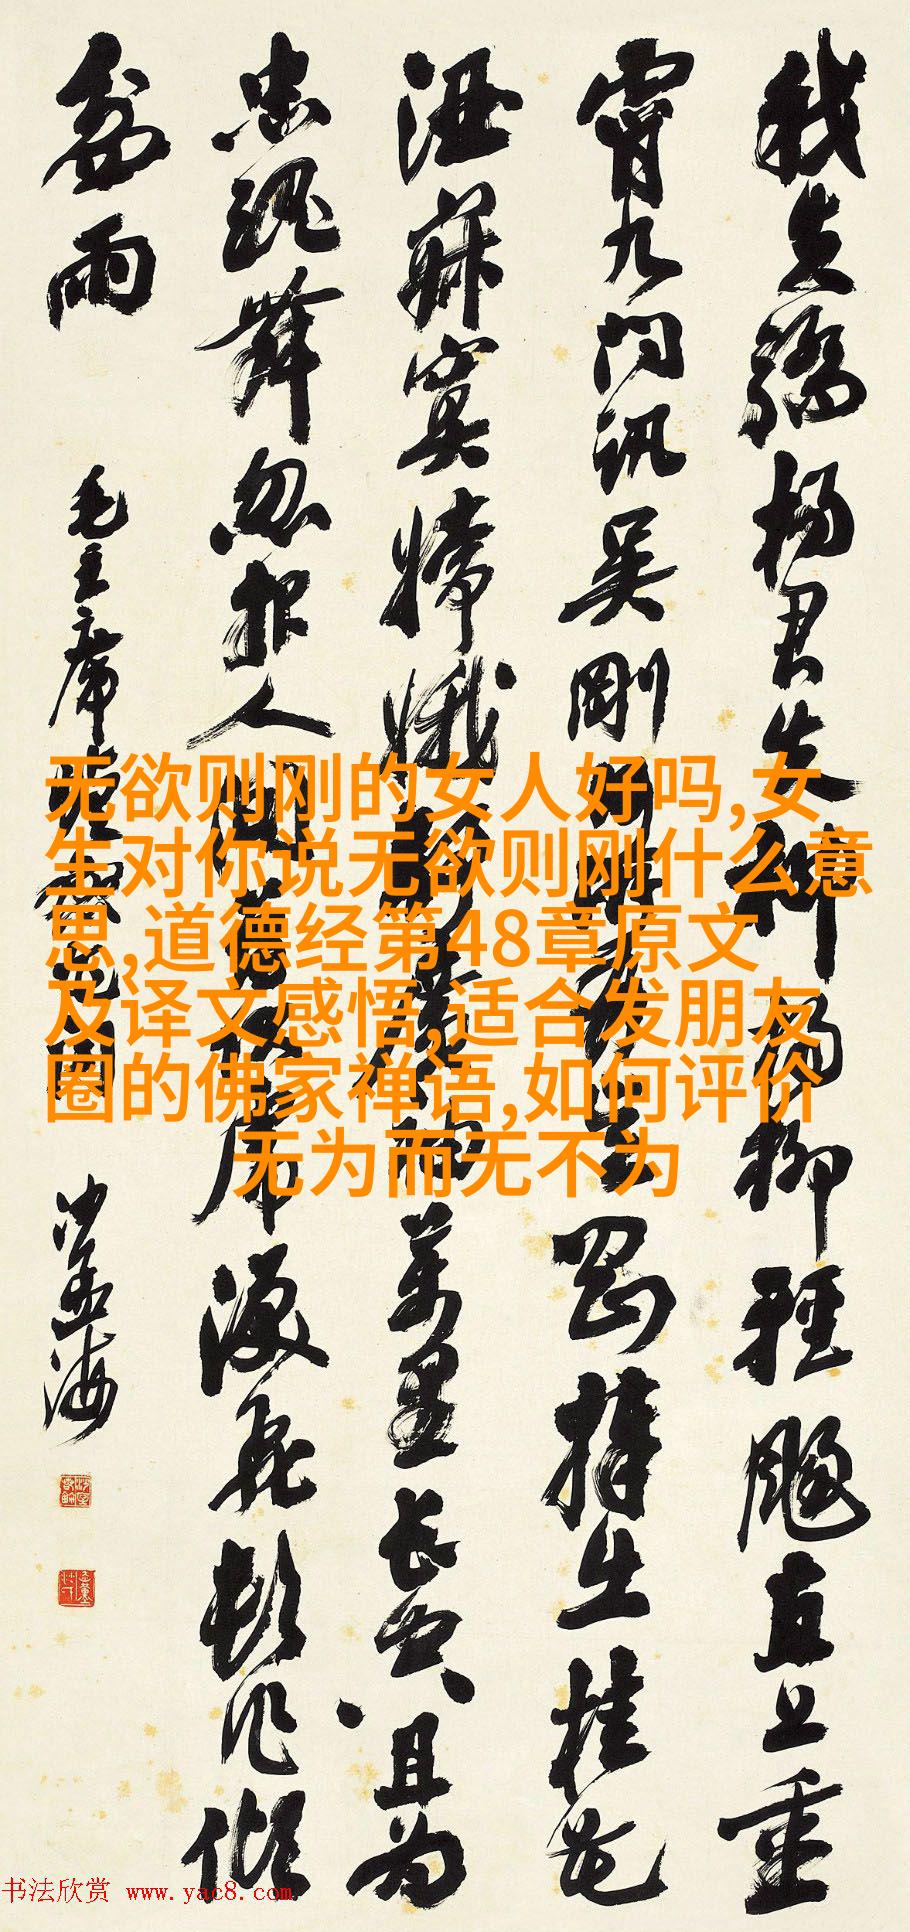 我失驕楊君失柳楊柳輕颺直上重
霄九問訊吴剛捧出桂花
酒寂寞嫦娥舒廣袖萬里長空且為
忠魂舞忽報人間曾伏虎淚飛頓作傾
盆雨
毛主席
沙孟海
无欲则刚的女人好吗,女
生对你说无欲则刚什么意
思,道德经第48章原文
及译文感悟,适合发朋友
圈的佛家禅语,如何评价
无为而无不为
书法欣赏 www.yac8.com